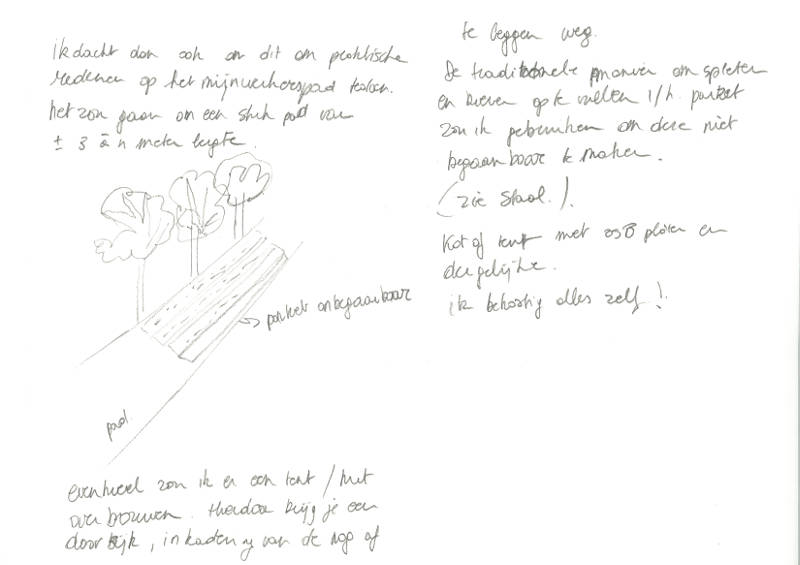 ik dacht dan ook om dit om praktische
redenen op het mijnwerkerspad te
het zou gaan om een stuk pad van
± 3 à 4 meter lengte.
parket onbegaanbaar
pad.
eventueel zou ik er een tent / hut
over bouwen. Hierdoor krijg je een
doorkijk, inkadering van de nog af
te leggen weg.
De traditionele manier om spleten
en kieren op te vullen i/h. parket
zou ik gebruiken om deze niet
begaanbaar te maken.
(zie Staal.).
Kot of tent met OSB platen en
dergelijke.
ik bekostig alles zelf !.